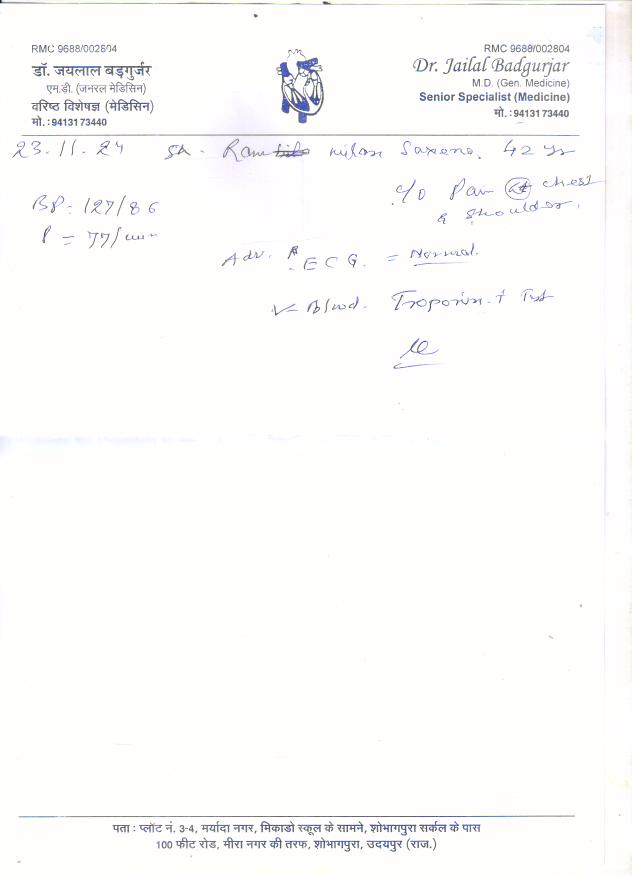 RMC 9688/002804
डॉ. जयलाल बड़गुर्जर
एम.डी. (जनरल मेडिसिन)
वरिष्ठ विशेषज्ञ (मेडिसिन)
मो. :94131 73440
RMC 9688/002804
Dr. Jailal Badgurjar
M.D. (Gen. Medicine)
Senior Specialist (Medicine)
मो. :94131 73440
23.11.24 Ram milan Saxena. 42 yr
C/O Pain chest
& Shoulder.
BP = 127/86
P = 77/min
Adv. ECG. = Normal.
Blood. Troponin-t Test
पता : प्लॉट नं. 3-4, मर्यादा नगर, मिकाडो स्कूल के सामने, शोभागपुरा सर्कल के पास
100 फीट रोड, मीरा नगर की तरफ, शोभागपुरा, उदयपुर (राज.)